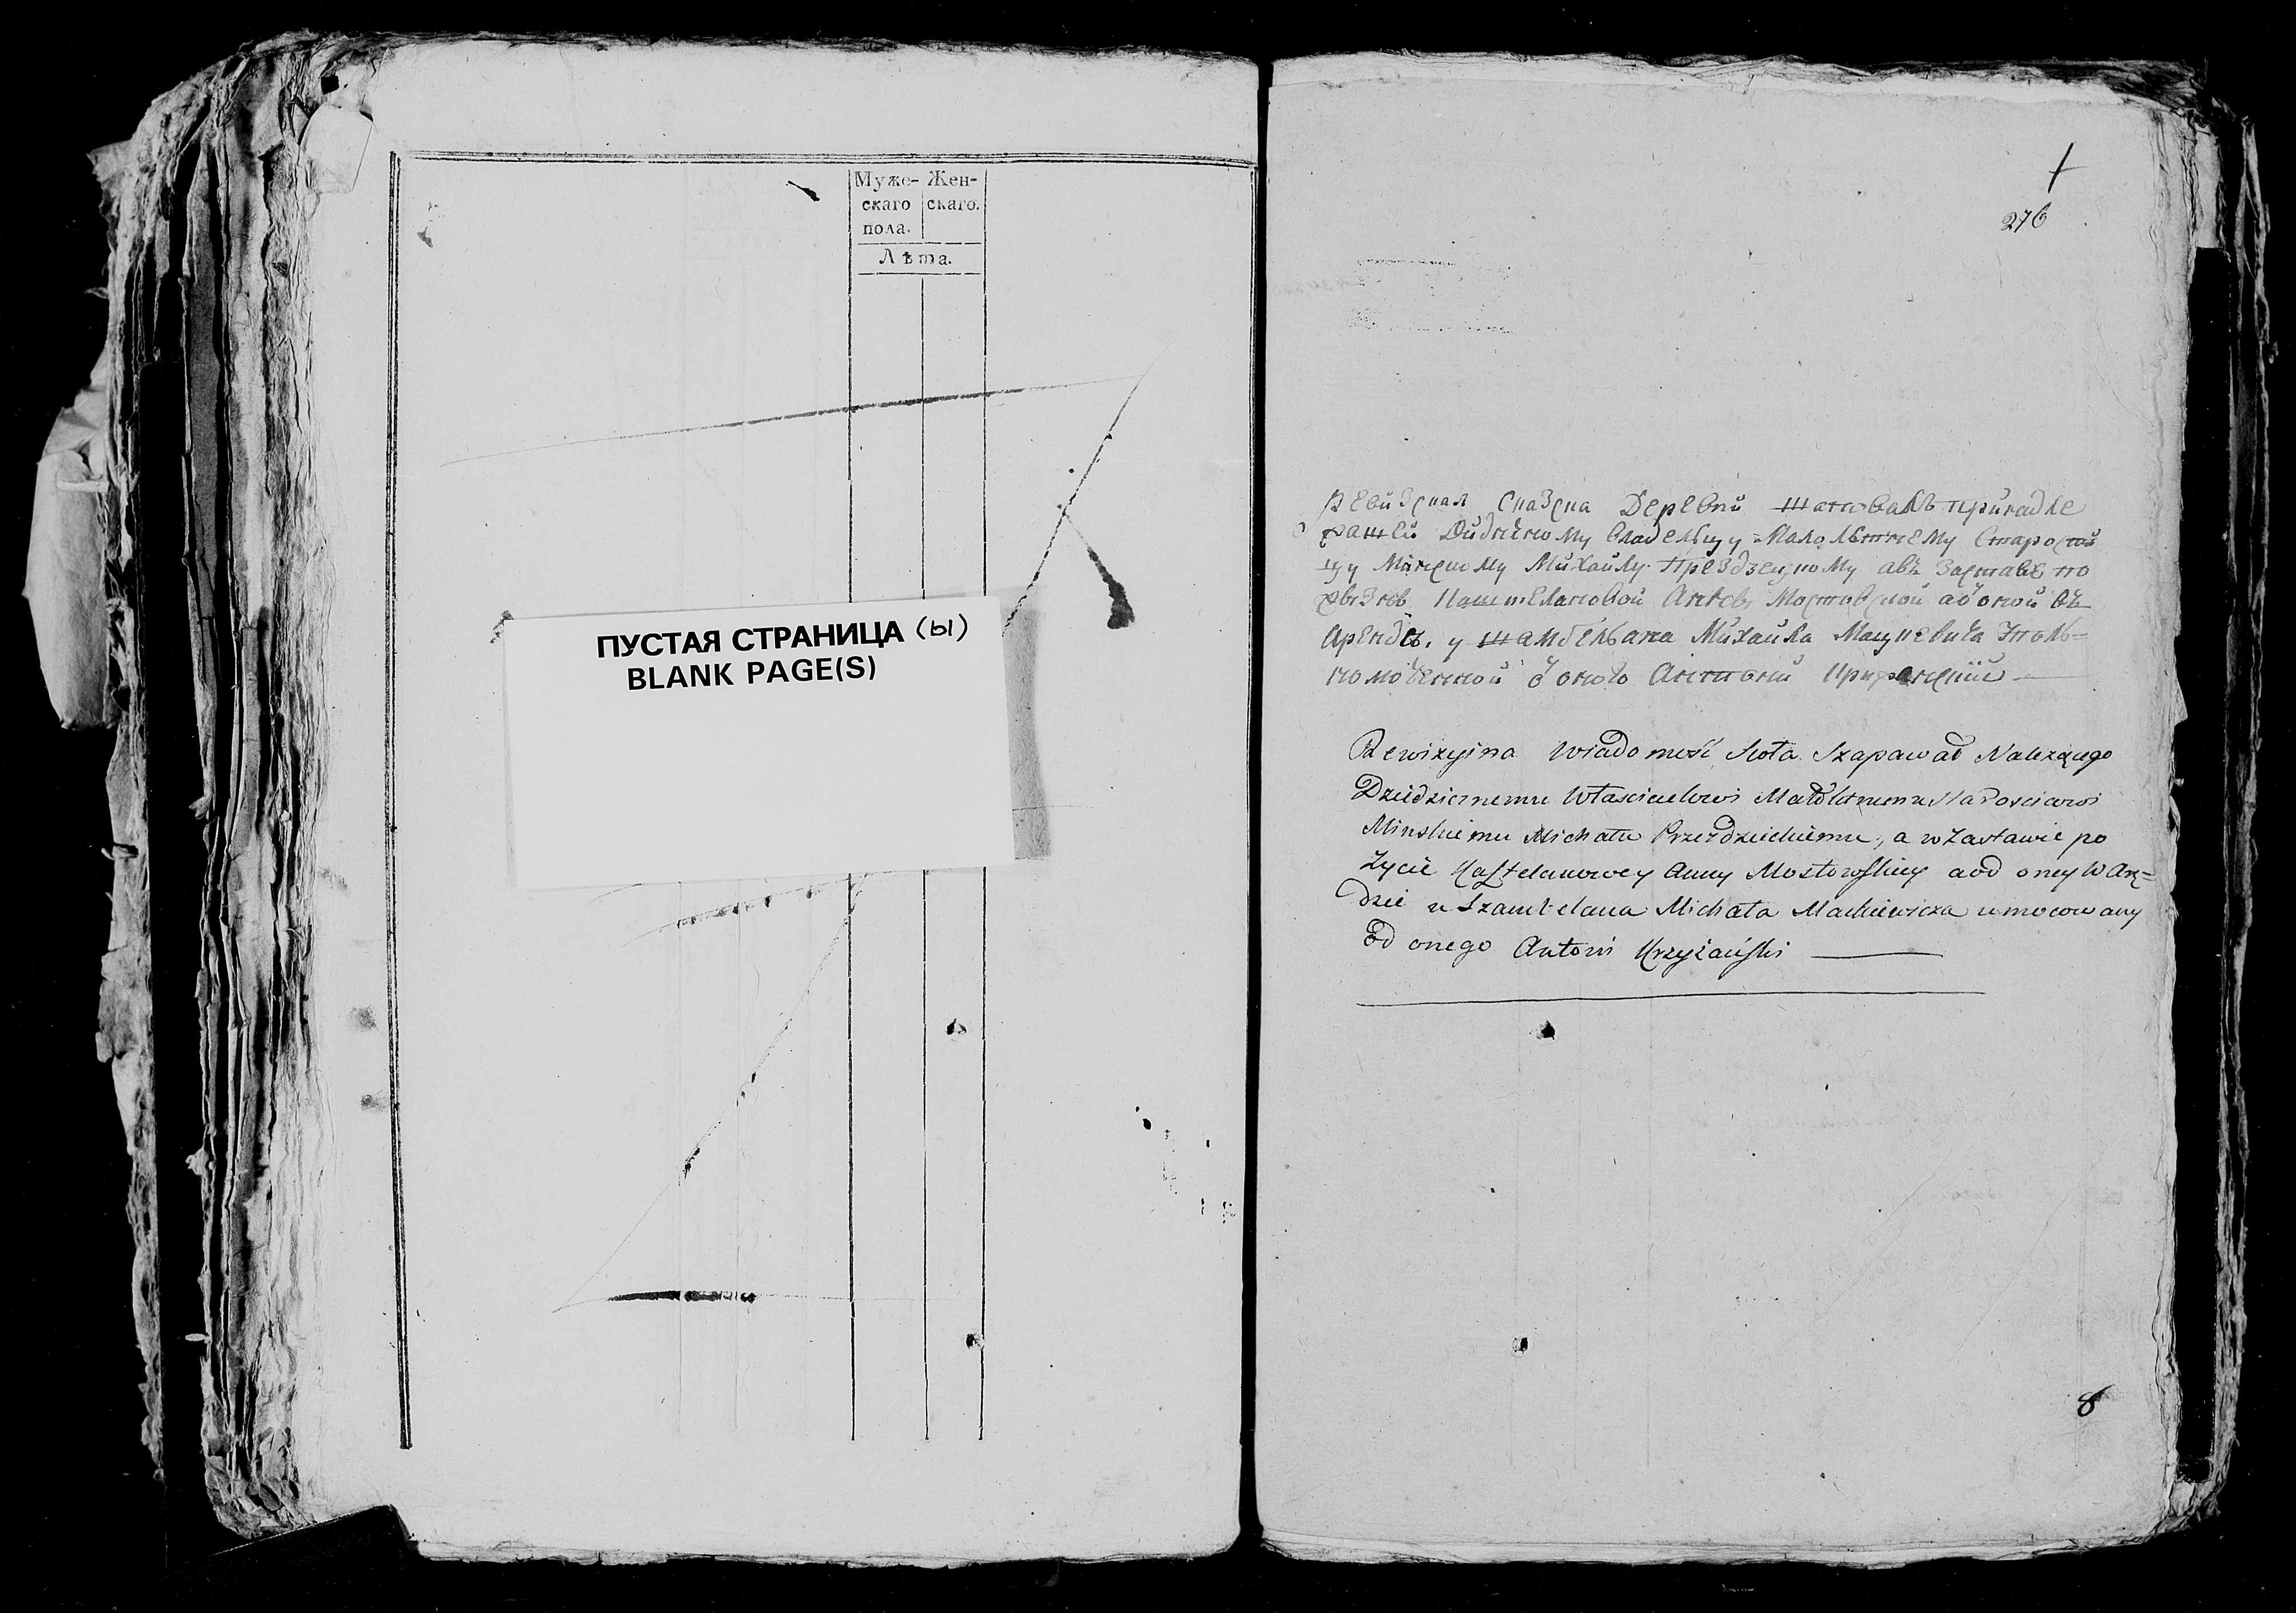 Муже- Жен-
скаго скаго.
пола.
Лѣта.
ПУСТАЯ СТРАНИЦА (ы)
BLANK PAGE(S)
276
Ревизская Сказка Деревни принадле
жащей Дидичному владельцу Малолѣтнему Старости
цу Минскому Михайлу Прездзецкому авъ заставе по
жызне Каштелановой Аннѣ Мостовской аб оной въ
Арендѣ у Шамбеляна Михайла Мацкевича Упол=
номоченной о оного Антоний
Rewizyina Wiadomość Sioła Szapawał Należącego
Dziedzicznemu Właścicielowi Małoletniemu Starościcowi
Minskiemu Michału Przezdzieckiemu, a w Zastawie po
Życie Kasztelanowey Anny Mostowskiey a od oney W Arę=
dzie u Szambelana Michała Mackiewicza umocowany
Od onego Antoni Krzyżański
8